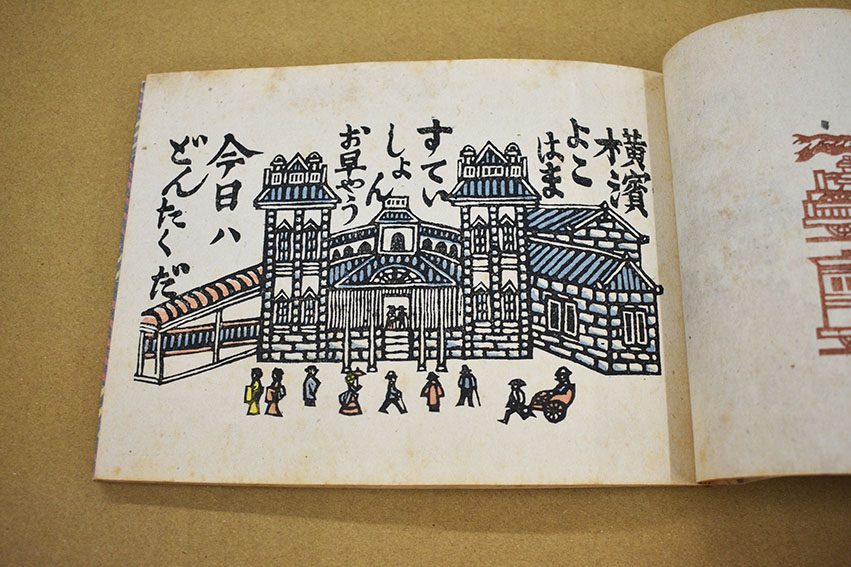 横濱
よこはま
すてい
しょん
お早やう
今日ハ
どんたくだ